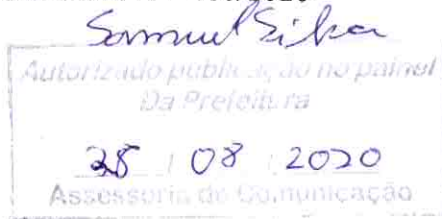 Samuel Silva
Autorizado publicação no painel
Da Prefeitura
25 / 08 / 2020
Assessoria de Comunicação